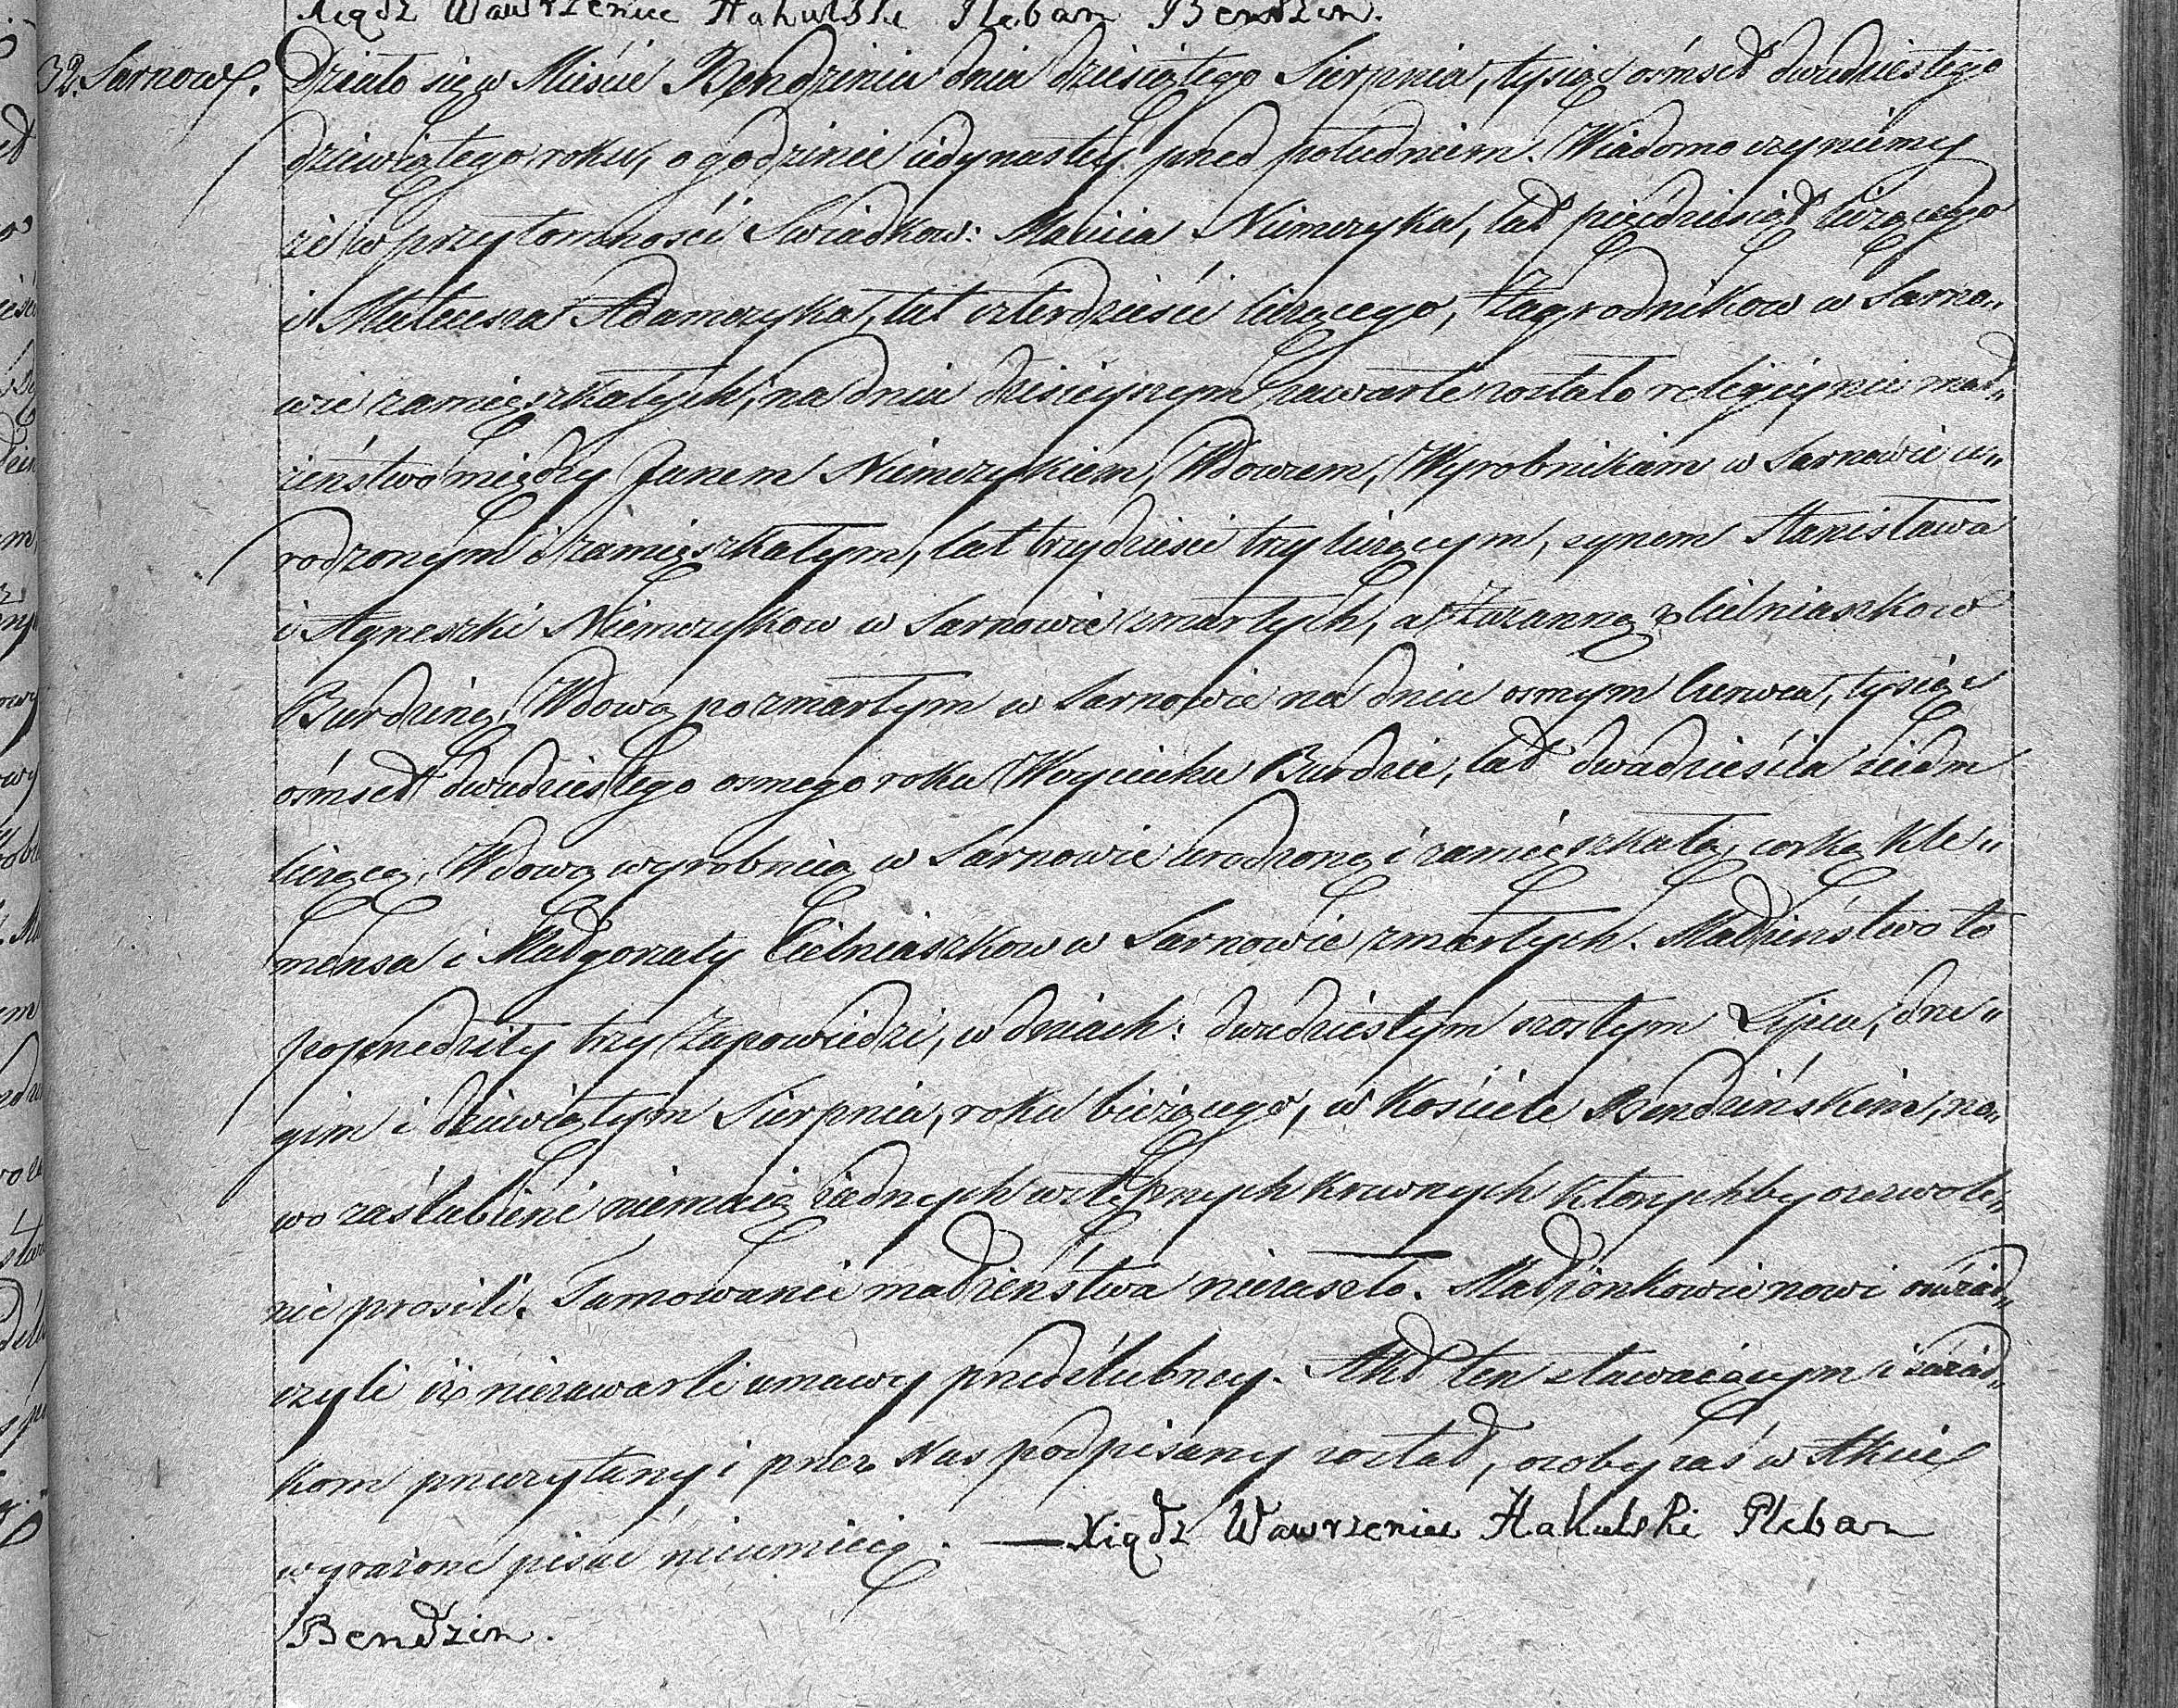 Xiądz Wawrzeniec Hakulski Pleban Bendzin.
32. Sarnow. Działo się w Mieście Bendzinie dnia dziesiątego Sierpnia, tysiąc ośmset dwudziestego
dziewiątego roku, o godzinie iedynastey przed południem. Wiadomo czyniemy
że w przytomności Swiadkow: Macieia Niemczyka, lat piędziesiąt liczącego
i Mateusza Adamczyka, lat czterdzieście liczącego, Zagrodnikow w Sarno„
wie zamieszkałych, na dniu dzisieyszym zawarte zostało religiyne mał„
żeństwo między Janem Niemczykiem, Wdowcem, Wyrobnikiem w Sarnowie u„
rodzonym i zamieszkałym, lat trzydzieście trzy liczącym, synem Stanisława
i Agneszki Niemczykow w Sarnowie zmarłych, a Zuzanną z Cielniaszkow
Burdziną, Wdową po zmarłym w Sarnowie na dniu osmym Czerwca, tysiąc
ośmset dwudziestego osmego roku Woyciechu Burdzie, lat dwadzieścia siedm
liczącą, Wdową wyrobnicą w Sarnowie urodzoną i zamieszkałą, corką Kle„
mensa i Małgorzaty Cielniaszkow w Sarnowie zmarłych. Małżeństwo to
poprzedziły trzy Zapowiedzi, w dniach: dwudziestym szostym Lipca, dru„
gim i dziewiątym Sierpnia, roku bieżącego, w Kościele Bendzińskim, no„
wo zaślubieni niemaią żadnych wstępnych krewnych ktorychby o zezwole„
nie prosili. Tamowanie małżeństwa niezaszło. Małżonkowie nowi oświad„
czyli iż niezawarli umowy przedślubney. Akt ten stawaiącym i swiad„
kom przeczytany i przez Nas podpisany został, osoby zaś w Akcie
wyrażone pisać nieumieią. — Xiądz Wawrzeniec Hakulski Pleban
Bendzin.